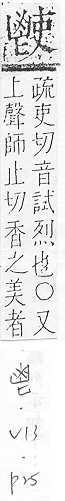 疏吏切音試烈也○又
上聲師止切香之美者
鬯.V13.p25